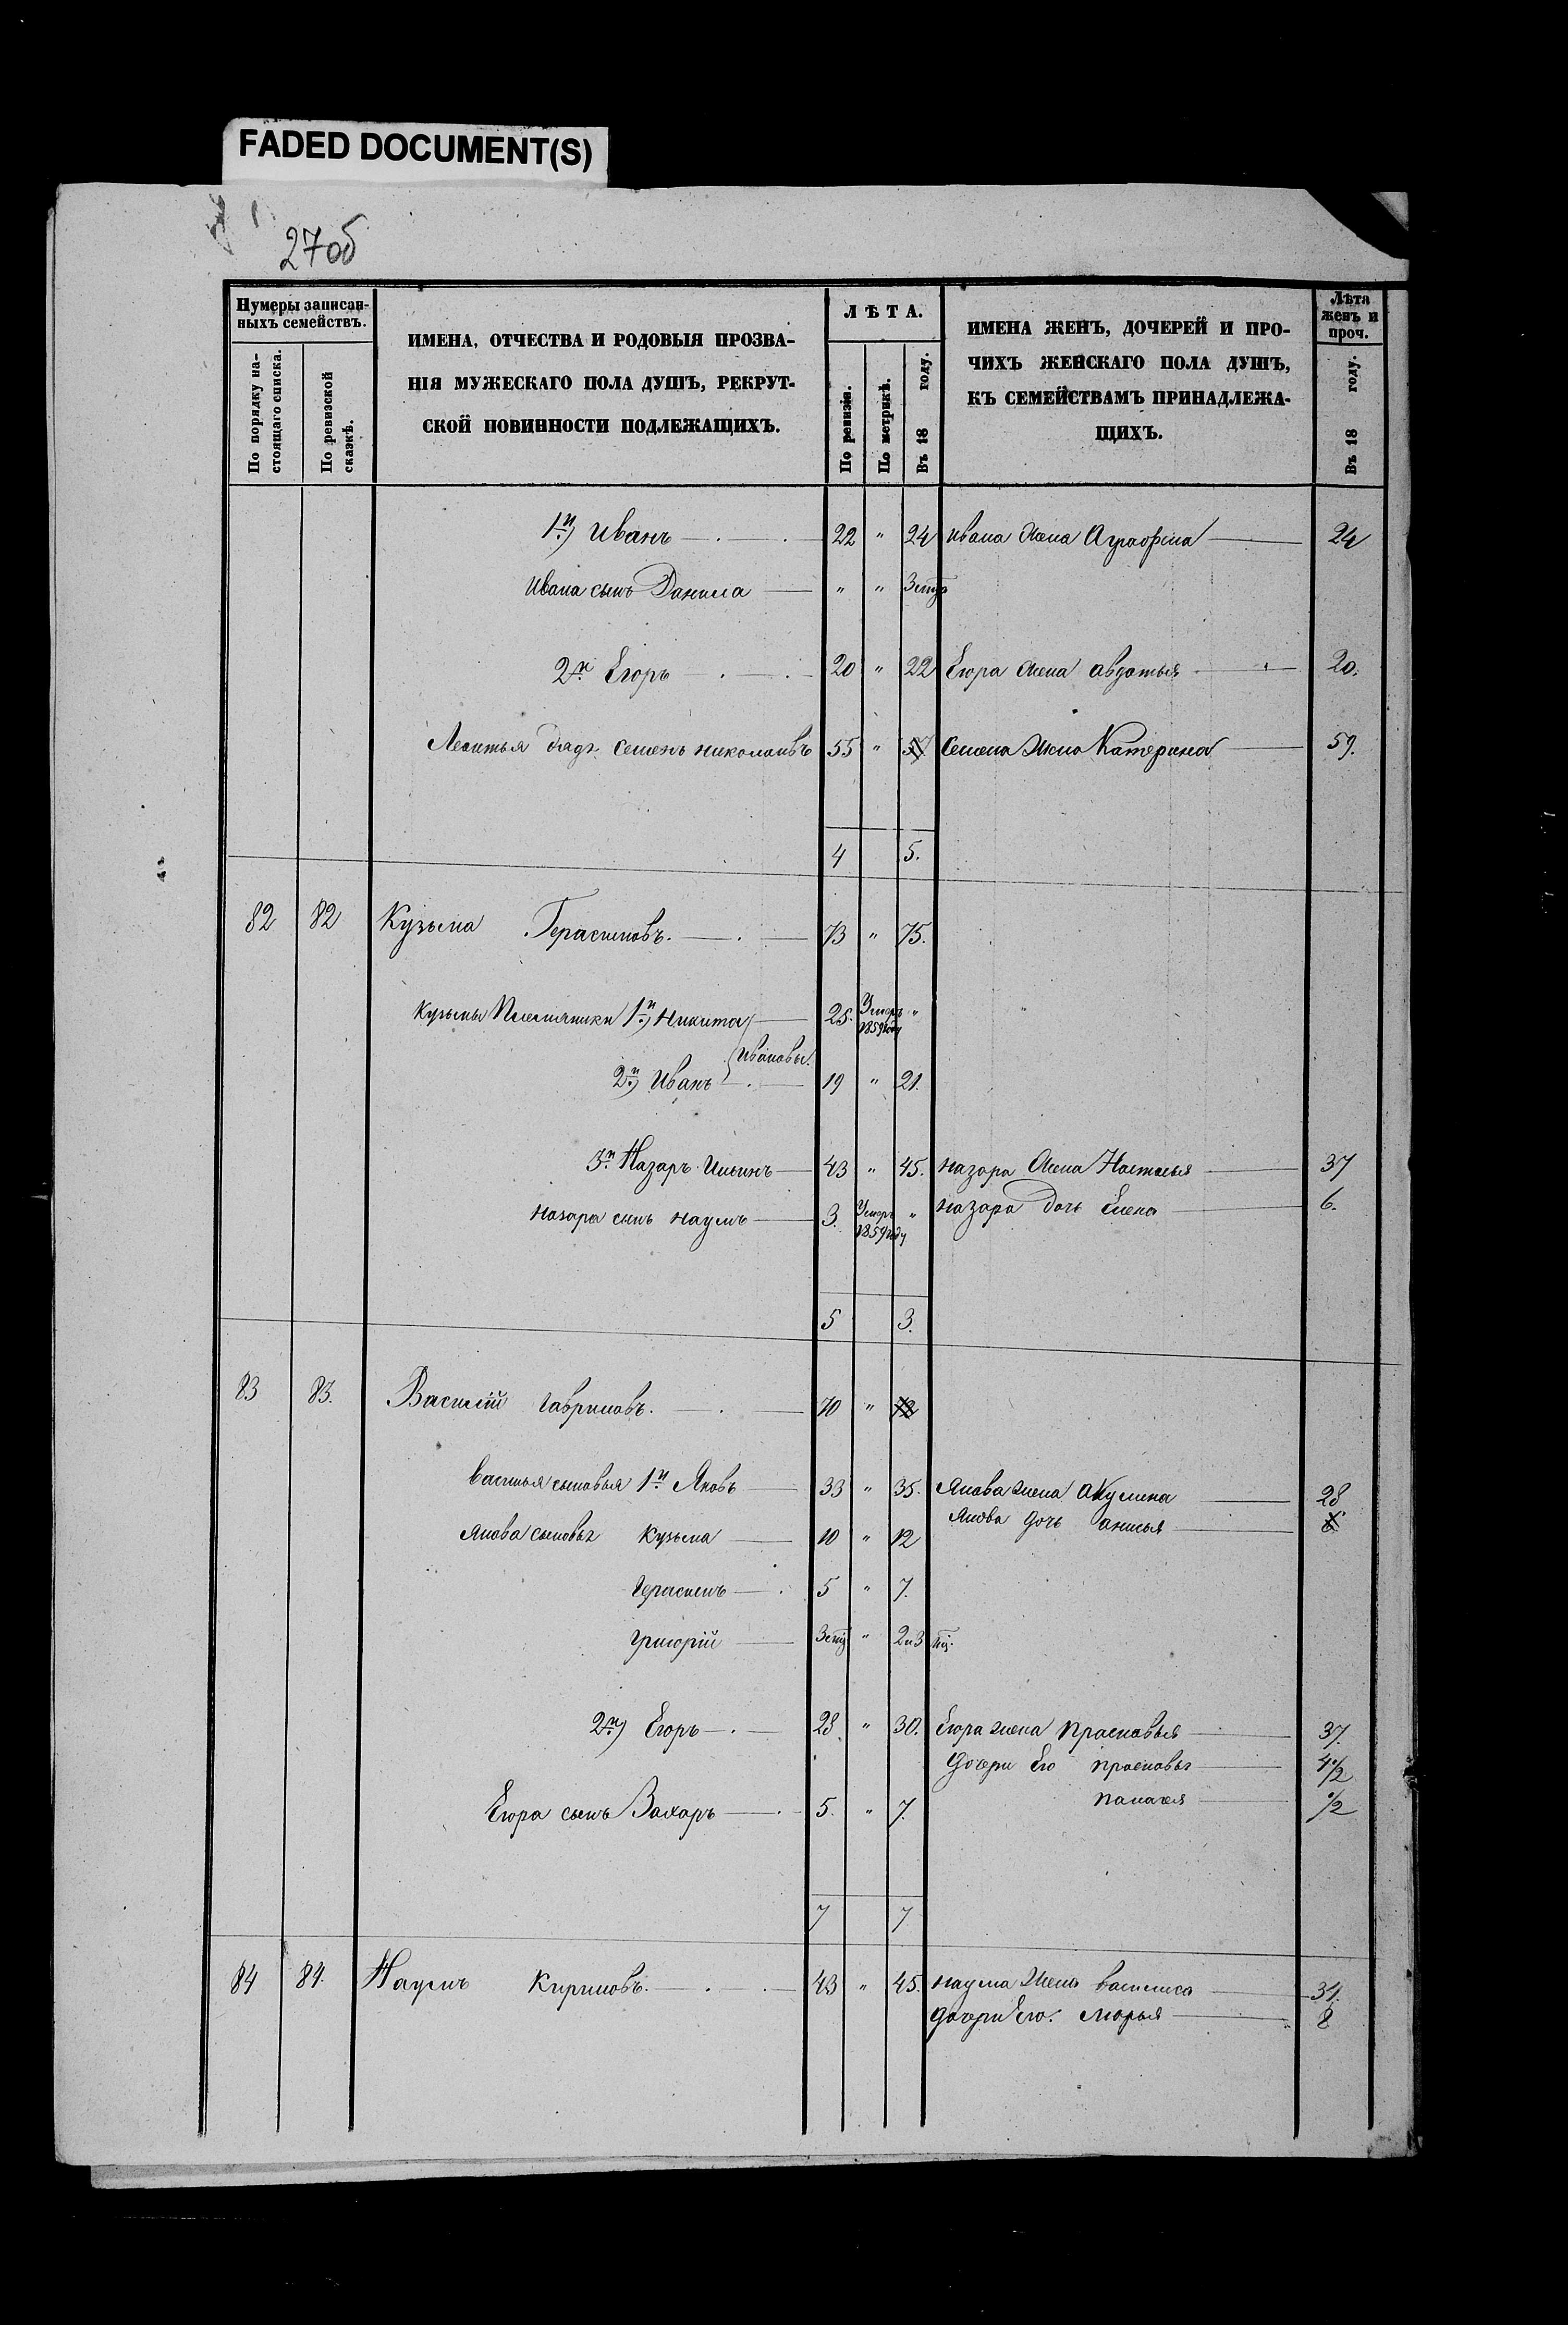 FADED DOCUMENT(S)
27об
Нумеры записан-
ныхъ семействъ.
По порядку на-
стоящаго списка.
По ревизской
сказкѣ.
ИМЕНА, ОТЧЕСТВА И РОДОВЫЯ ПРОЗВА-
НІЯ МУЖЕСКАГО ПОЛА ДУШЪ, РЕКРУТ-
СКОЙ ПОВИННОСТИ ПОДЛЕЖАЩИХЪ.
ЛѢТА.
По ревизіи.
По метрикѣ.
Въ 18 году.
ИМЕНА ЖЕНЪ, ДОЧЕРЕЙ И ПРО-
ЧИХЪ ЖЕНСКАГО ПОЛА ДУШЪ,
КЪ СЕМЕЙСТВАМЪ ПРИНАДЛЕЖА-
ЩИХЪ.
Лѣта
женъ и
проч.
Въ 18 году.
1й) Иванъ 22 " 24 Ивана жена Аграфена 24
Ивана сынъ Данила " "
2й Егоръ 20 " 22 Егора жена авдотья 20.
дядя Семенъ николаивъ 55 " 57 Семена жена Катерина 59.
4 5.
82 82 Кузьма Герасимовъ. 73 " 75.
Кузьмы Племянники 1й) Никита 25. Умеръ 1859 году "
Ивановы.
2й) Иванъ 19 " 21.
3й Назаръ Ильинъ 43 " 45. назара жена Наталья 37
назара сынъ наумъ 3. Умеръ 1859 году " назара дочь Елена 6.
5 3.
83 83. Василій гавриловъ. 70 " 72
василья сыновья 1й Яковъ 33 " 35. Якова жена акулина 28
Якова дочь анисья
Якова сыновья Кузьма 10 " 12
Герасимъ 5 " 7.
григорій "
2й) Егоръ 28 " 30. Егора жена прасковья 37.
дочери Его прасковья 4 1/2
Егора сынъ Захаръ 5. " 7. 1/2
7 7
84 84. Наумъ Кириловъ. 43 " 45. наума жена василиса 31.
дочери Его. марья 8